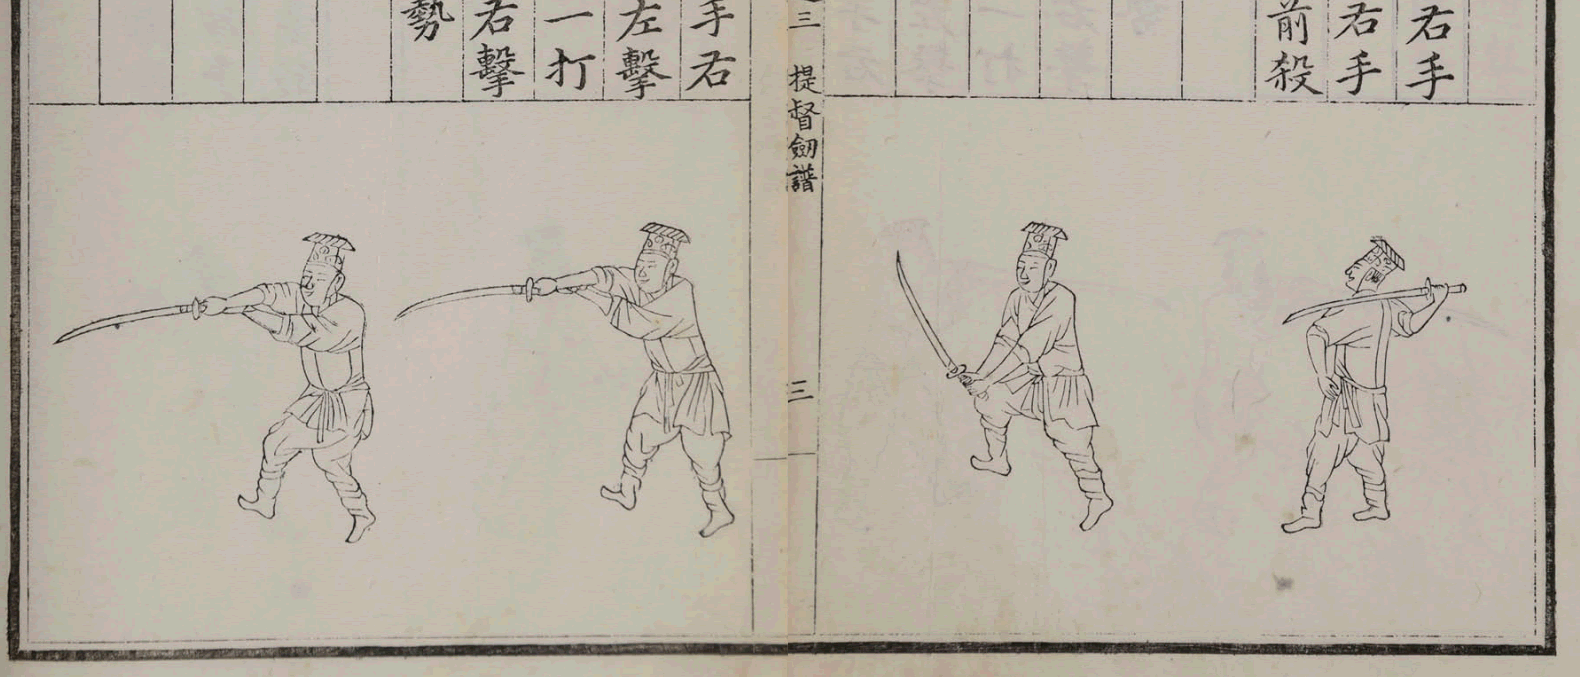 右手
右手
前殺
三 提督劒譜 三
手右
左擊
一打
右擊
勢